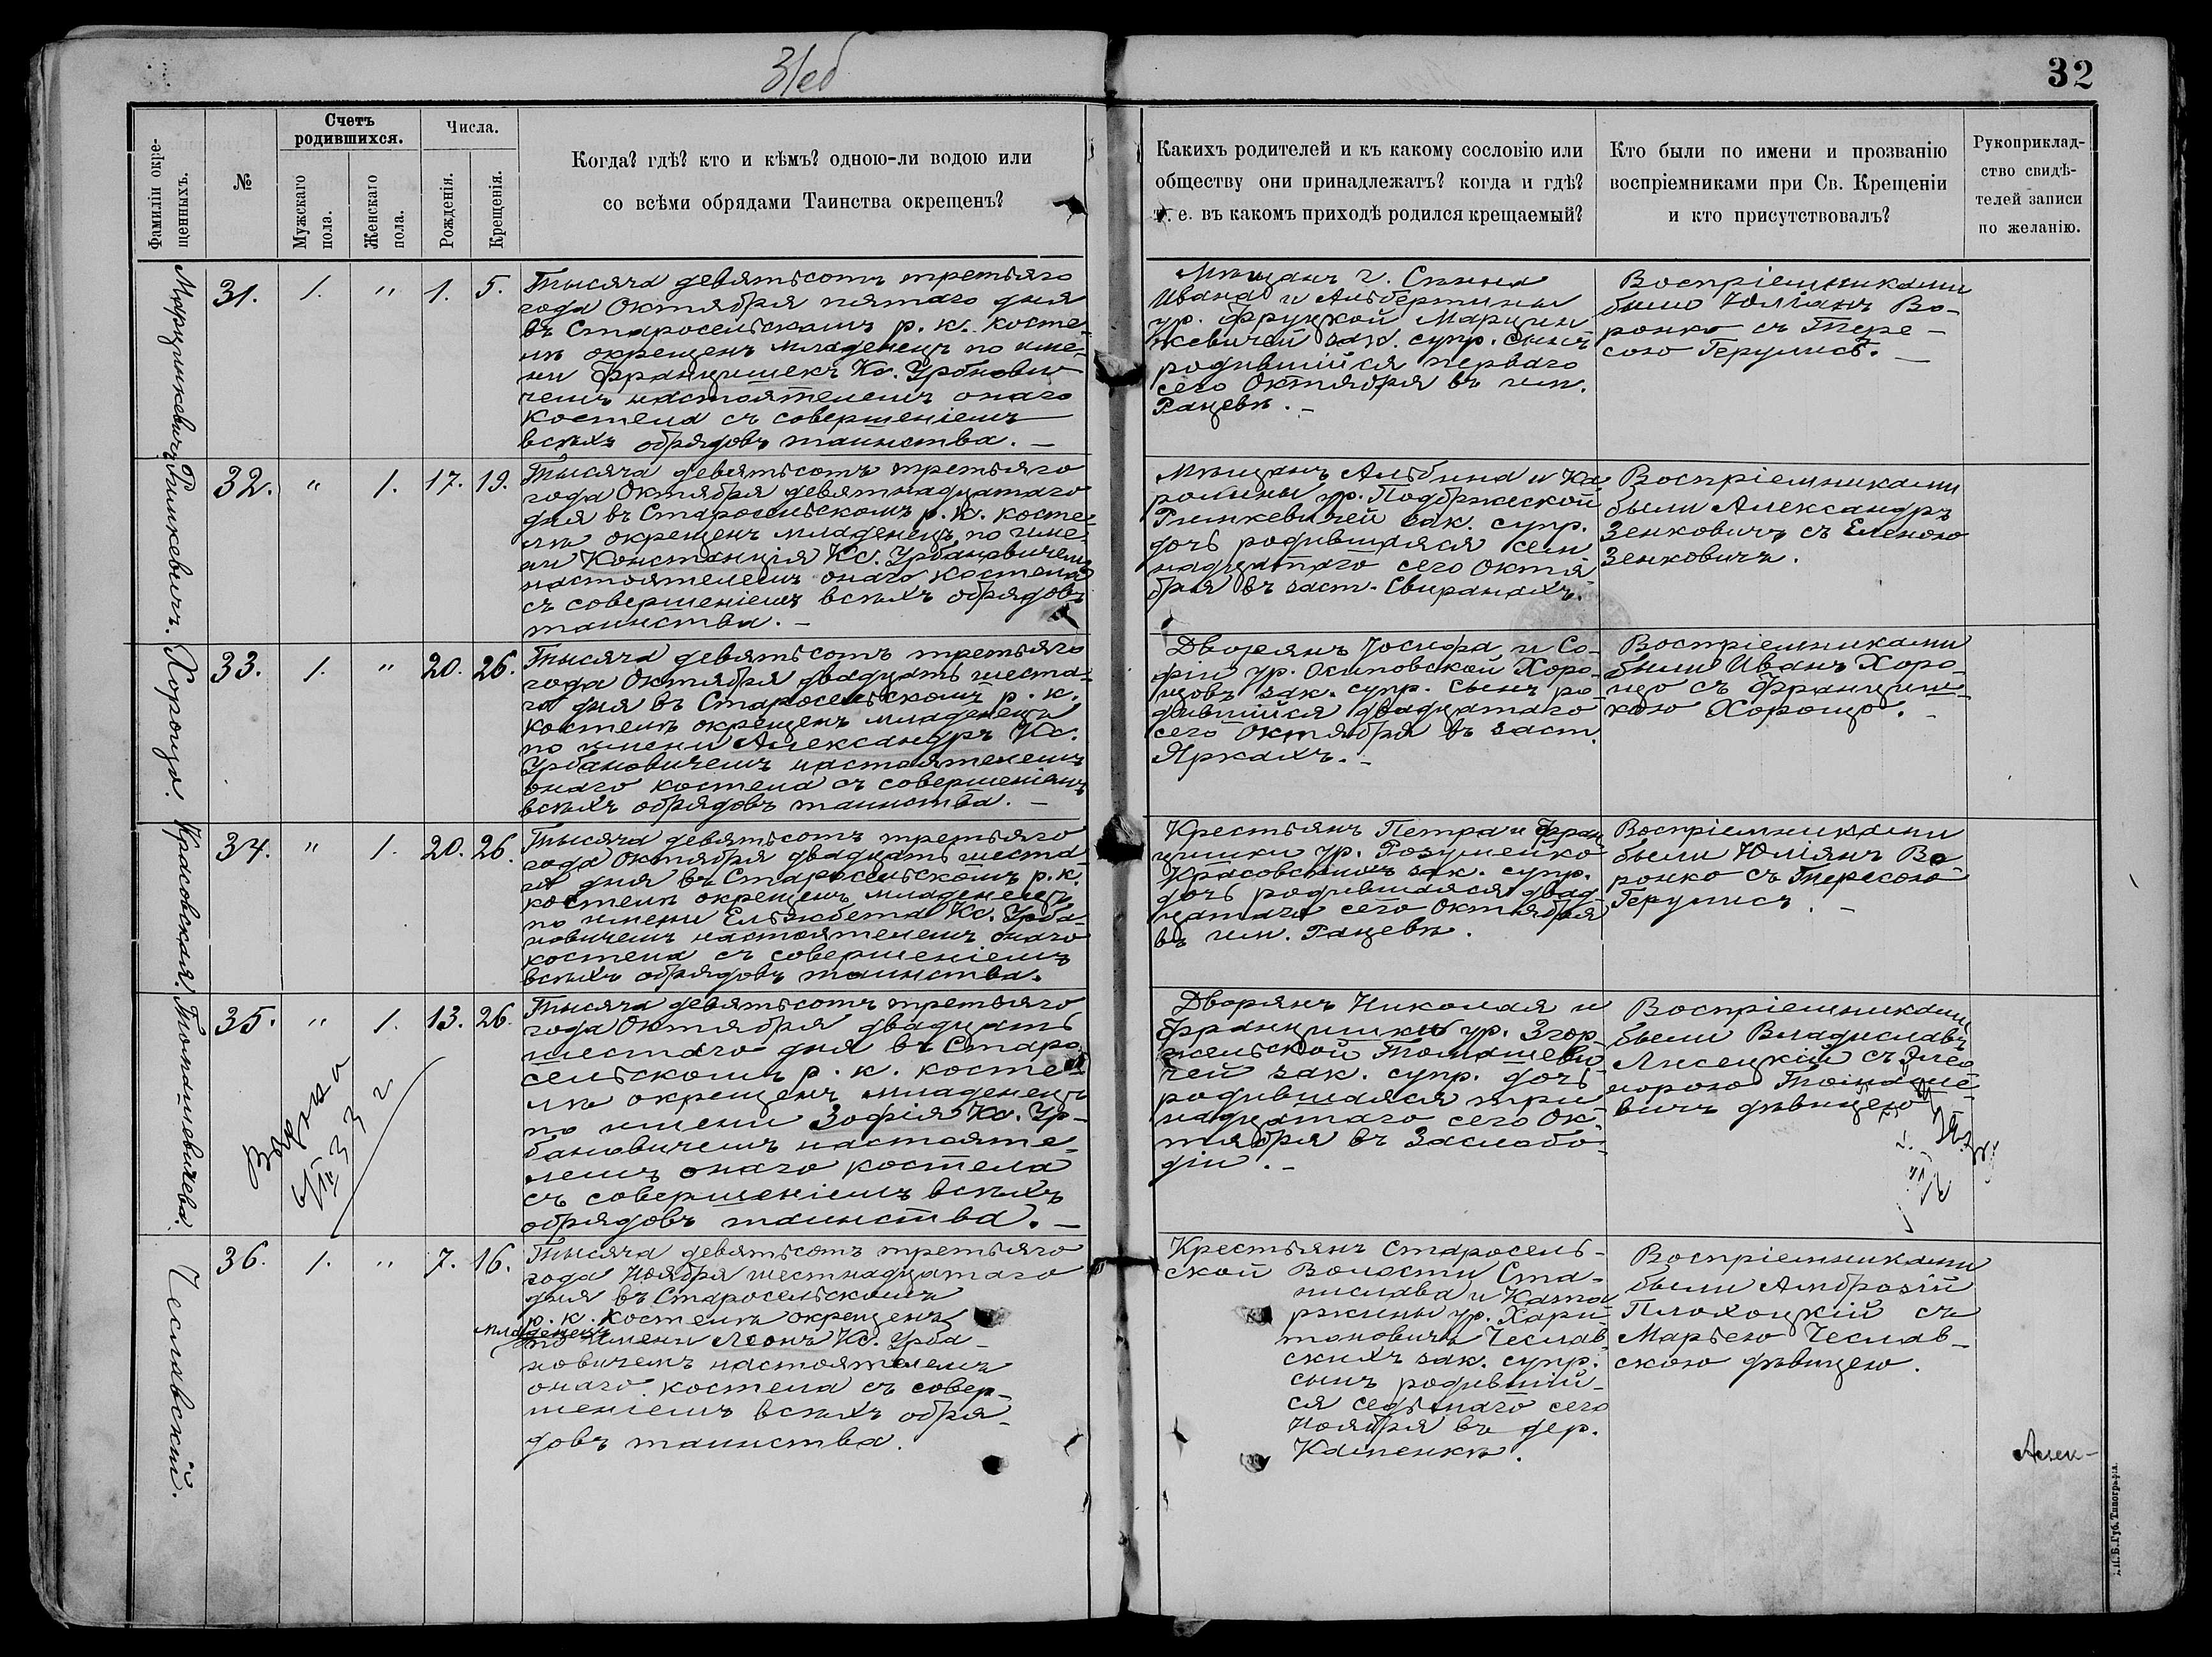 31об
32
Фамиліи окре-
щенныхъ.
№
Счетъ
родившихся.
Мужскаго
пола.
Женскаго
пола.
Числа.
Рожденія.
Крещенія.
Когда? гдѣ? кто и кѣмъ? одною-ли водою или
со всѣми обрядами Таинства окрещенъ?
Какихъ родителей и къ какому сословію или
обществу они принадлежатъ? когда и гдѣ?
т. е. въ какомъ приходѣ родился крещаемый?
Кто были по имени и прозванію
воспріемниками при Св. Крещеніи
и кто присутствовалъ?
Рукоприклад-
ство свидѣ-
телей записи
по желанію.
Марцинкевичъ
31. 1. " 1. 5.
Тысяча девятьсотъ третьяго
года Октября пятаго дня
въ Старосельскомъ р. к. косте-
лѣ окрещенъ младенецъ по име-
ни Францишекъ Кс. Урбанови-
чемъ настоятелемъ онаго
костела съ совершеніемъ
всѣхъ обрядовъ таинства. —
Мѣщанъ г.
Ивана и Альбертины
ур. Фруцкой Марцин-
кевичей зак. супр. сынъ
родившійся перваго
сего Октября въ им.
Рацевѣ. —
Воспріемниками
были Юліанъ Во-
ронко съ Тере-
сою Герулисъ. —
Римкевичъ.
32. " 1. 17. 19.
Тысяча девятьсотъ третьяго
года Октября девятнадцатаго
дня въ Старосельскомъ р. к. косте-
лѣ окрещенъ младенецъ по име-
ни Констанція Кс. Урбановичемъ
настоятелемъ онаго костела
съ совершеніемъ всѣхъ обрядовъ
таинства. —
Мѣщанъ Альбина и Ка-
ролины ур. Подбржеской
Римкевичей зак. супр.
дочь родившаяся сем-
надцатаго сего Октя-
бря въ заст. Свиранахъ.
Воспріемниками
были Александръ
Зенковичъ съ Еленою
Зенковичъ.
Хороцо.
33. 1. " 20. 26.
Тысяча девятьсотъ третьяго
года Октября двадцать шеста-
го дня въ Старосельскомъ р. к.
костелѣ окрещенъ младенецъ
по имени Александръ Кс.
Урбановичемъ настоятелемъ
онаго костела съ совершеніемъ
всѣхъ обрядовъ таинства. —
Дворянъ Іосифа и Со-
фіи ур. Осиповской Хоро-
цовъ зак. супр. сынъ ро-
дившійся двадцатаго
сего Октября въ заст.
Яркахъ. —
Воспріемниками
были Иванъ Хоро-
цо съ Францишк-
кою Хороцо. —
Красовская.
34. " 1. 20. 26.
Тысяча девятьсотъ третьяго
года Октября двадцать шеста-
го дня въ Старосельскомъ р. к.
костелѣ окрещенъ младенецъ
по имени Ельжбета Кс. Урба-
новичемъ настоятелемъ онаго
костела съ совершеніемъ
всѣхъ обрядовъ таинства.
Крестьянъ Петра и Фран-
цишки ур. Розумейко
Красовскихъ зак. супр.
дочь родившаяся двад-
цатаго сего Октября
въ им. Рацевѣ.
Воспріемниками
были Юліянъ Во-
ронко съ Тересою
Герулисъ. —
Томашевичева.
35. " 1. 13. 26.
Тысяча девятьсотъ третьяго
года Октября двадцать
шестаго дня въ Старо-
сельскомъ р. к. косте-
лѣ окрещенъ младенецъ
по имени Зофія Кс. Ур-
бановичемъ настояте-
лемъ онаго костела
съ совершеніемъ всѣхъ
обрядовъ таинства. —
Дворянъ Николая и
Францишки ур. Згор-
жельской Томашеви-
чей зак. супр. дочь
родившаяся три-
надцатаго сего Ок-
тября въ Заслобо-
діи. —
Воспріемниками
были Владиславъ
Лисецкій съ Элео-
норою Томаше-
вичъ дѣвицею
Чеславскій.
36. 1. " 7. 16.
Тысяча девятьсотъ третьяго
года Ноября шестнадцатаго
дня въ Старосельскомъ
р. к. костелѣ окрещенъ
младенецъ
по имени Леонъ Кс. Урба-
новичемъ настоятелемъ
онаго костела съ совер-
шеніемъ всѣхъ обря-
довъ таинства.
Крестьянъ Старосель-
ской Волости Ста-
нислава и Ката-
ржины ур. Хари-
тоновичъ Чеслав-
скихъ зак. супр.
сынъ родившій-
ся седьмаго сего
Ноября въ дер.
Каменкѣ.
Воспріемниками
были Амброзій
Плохоцкій съ
Марьею Чеслав-
скою дѣвицею.
Алек-